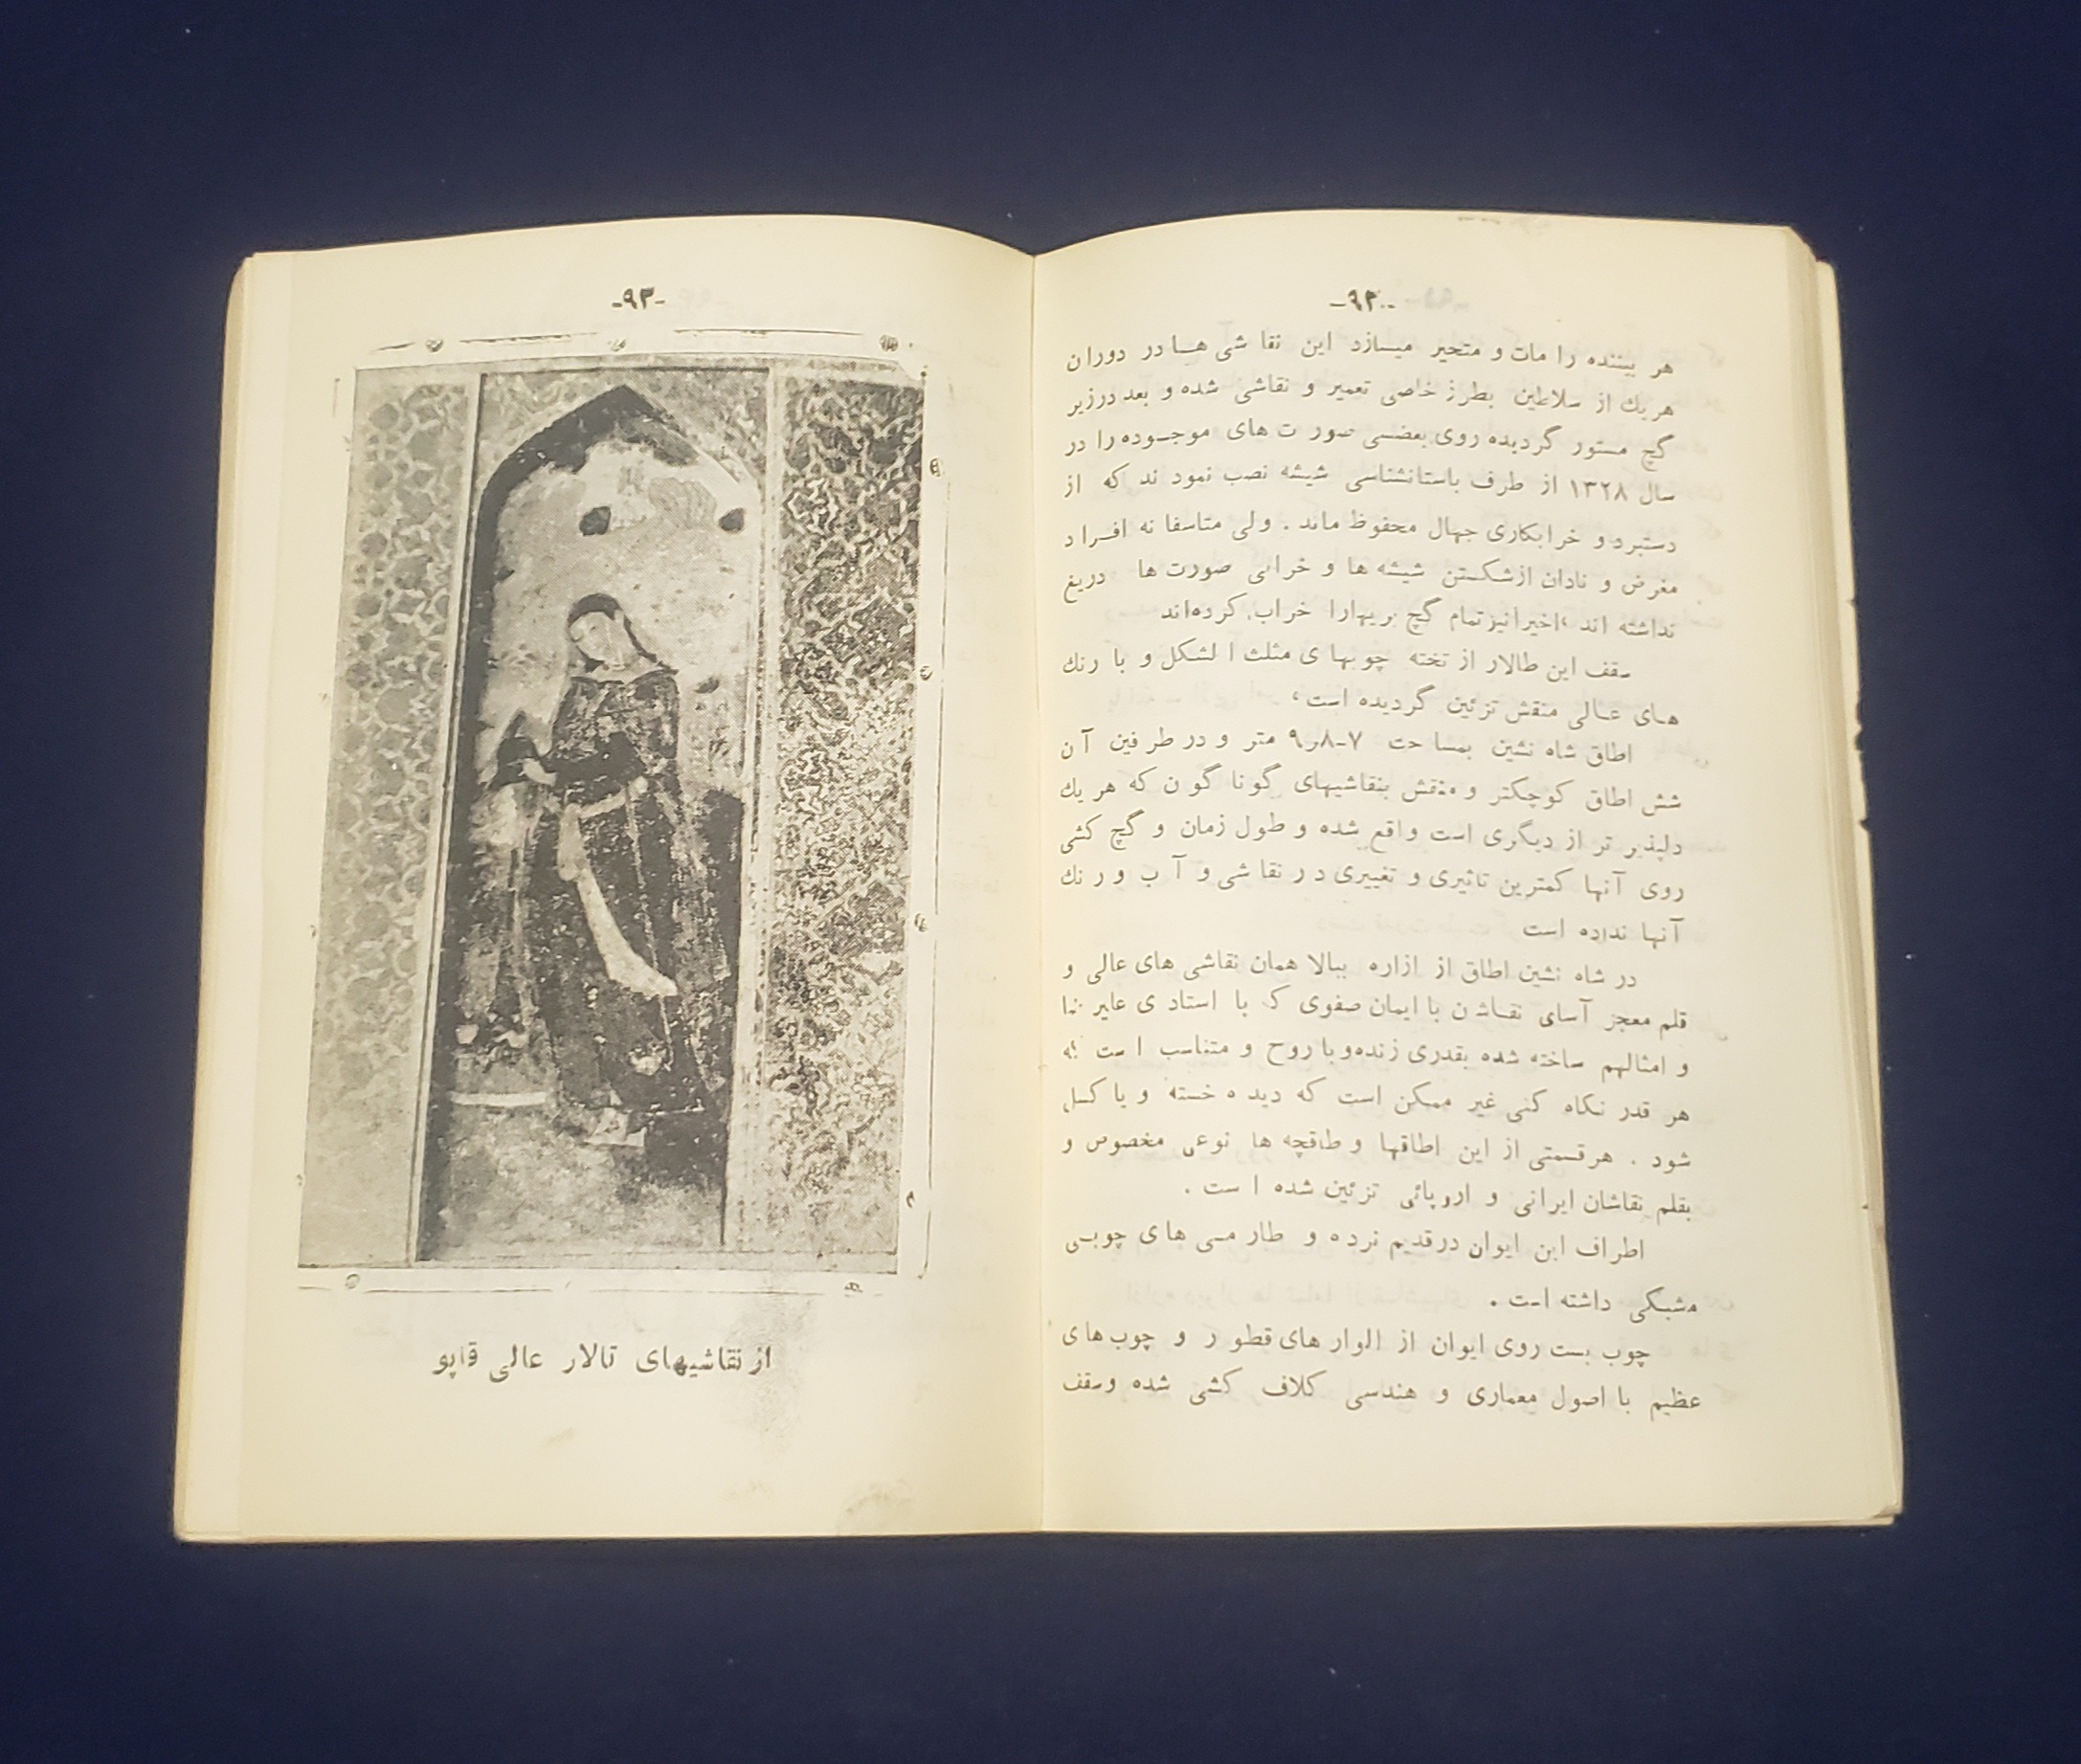 -۹۲-
هر بیننده را مات و متحیر میسازد این نقا شی هـا در دوران
هریك از سلاطین بطرز خاصی تعمیر و نقاشی شده و بعد درزیر
گچ مستور گردیده روی بعضـی صور ت های موجـوده را در
سال ۱۳۲۸ از طرف باستانشناسی شیشه نصب نمود ند که از
دستبرد و خرابکاری جهال محفوظ ماند . ولی متاسفا نه افـراد
مغرض و نادان ازشکستن شیشه ها و خرابی صورت ها دریغ
نداشته اند ،اخیرانیزتمام گچ بریهارا خراب کرده‌اند
سقف این طالار از تخته چوبها ی مثلث ا لشکل و با رنك
هـای عـالی منقش تزئین گردیده است،
اطاق شاه نشین بمسا حت ۷-۹٫۸ متر و در طرفین آ ن
شش اطاق کوچکتر و منقش بنقاشیهای گو نا گو ن که هر یك
دلپذیر تر از دیگری است واقع شده و طول زمان و گچ کشی
روی آنها کمترین تاثیری و تغییری د ر نقا شی و آ ب و ر نك
آنها نداده است
در شاه نشین اطاق از ازاره ببالا همان نقاشی های عالی و
قلم معجز آسای نقـاش ن با ایمان صفوی که با استاد ی علیر ضا
و امثالهم ساخته شده بقدری زنده‌وبا روح و متناسب ا ست که
هر قدر نگاه کنی غیر ممکن است که دید ه خسته و یا کسل
شود . هرقسمتی از این اطاقها و طاقچه ها نوعی مخصوص و
بقلم نقاشان ایرانی و اروپائی تزئین شده ا ست .
اطراف این ایوان درقدیم نرده و طار مـی های چوبـی
مشبکی داشته است .
چوب بست روی ایوان از الوار های قطو ر و چوب‌های
عظیم با اصول معماری و هندسی کلاف کشی شده وسقف
-۹۳-
از نقاشیهای تالار عالی قاپو